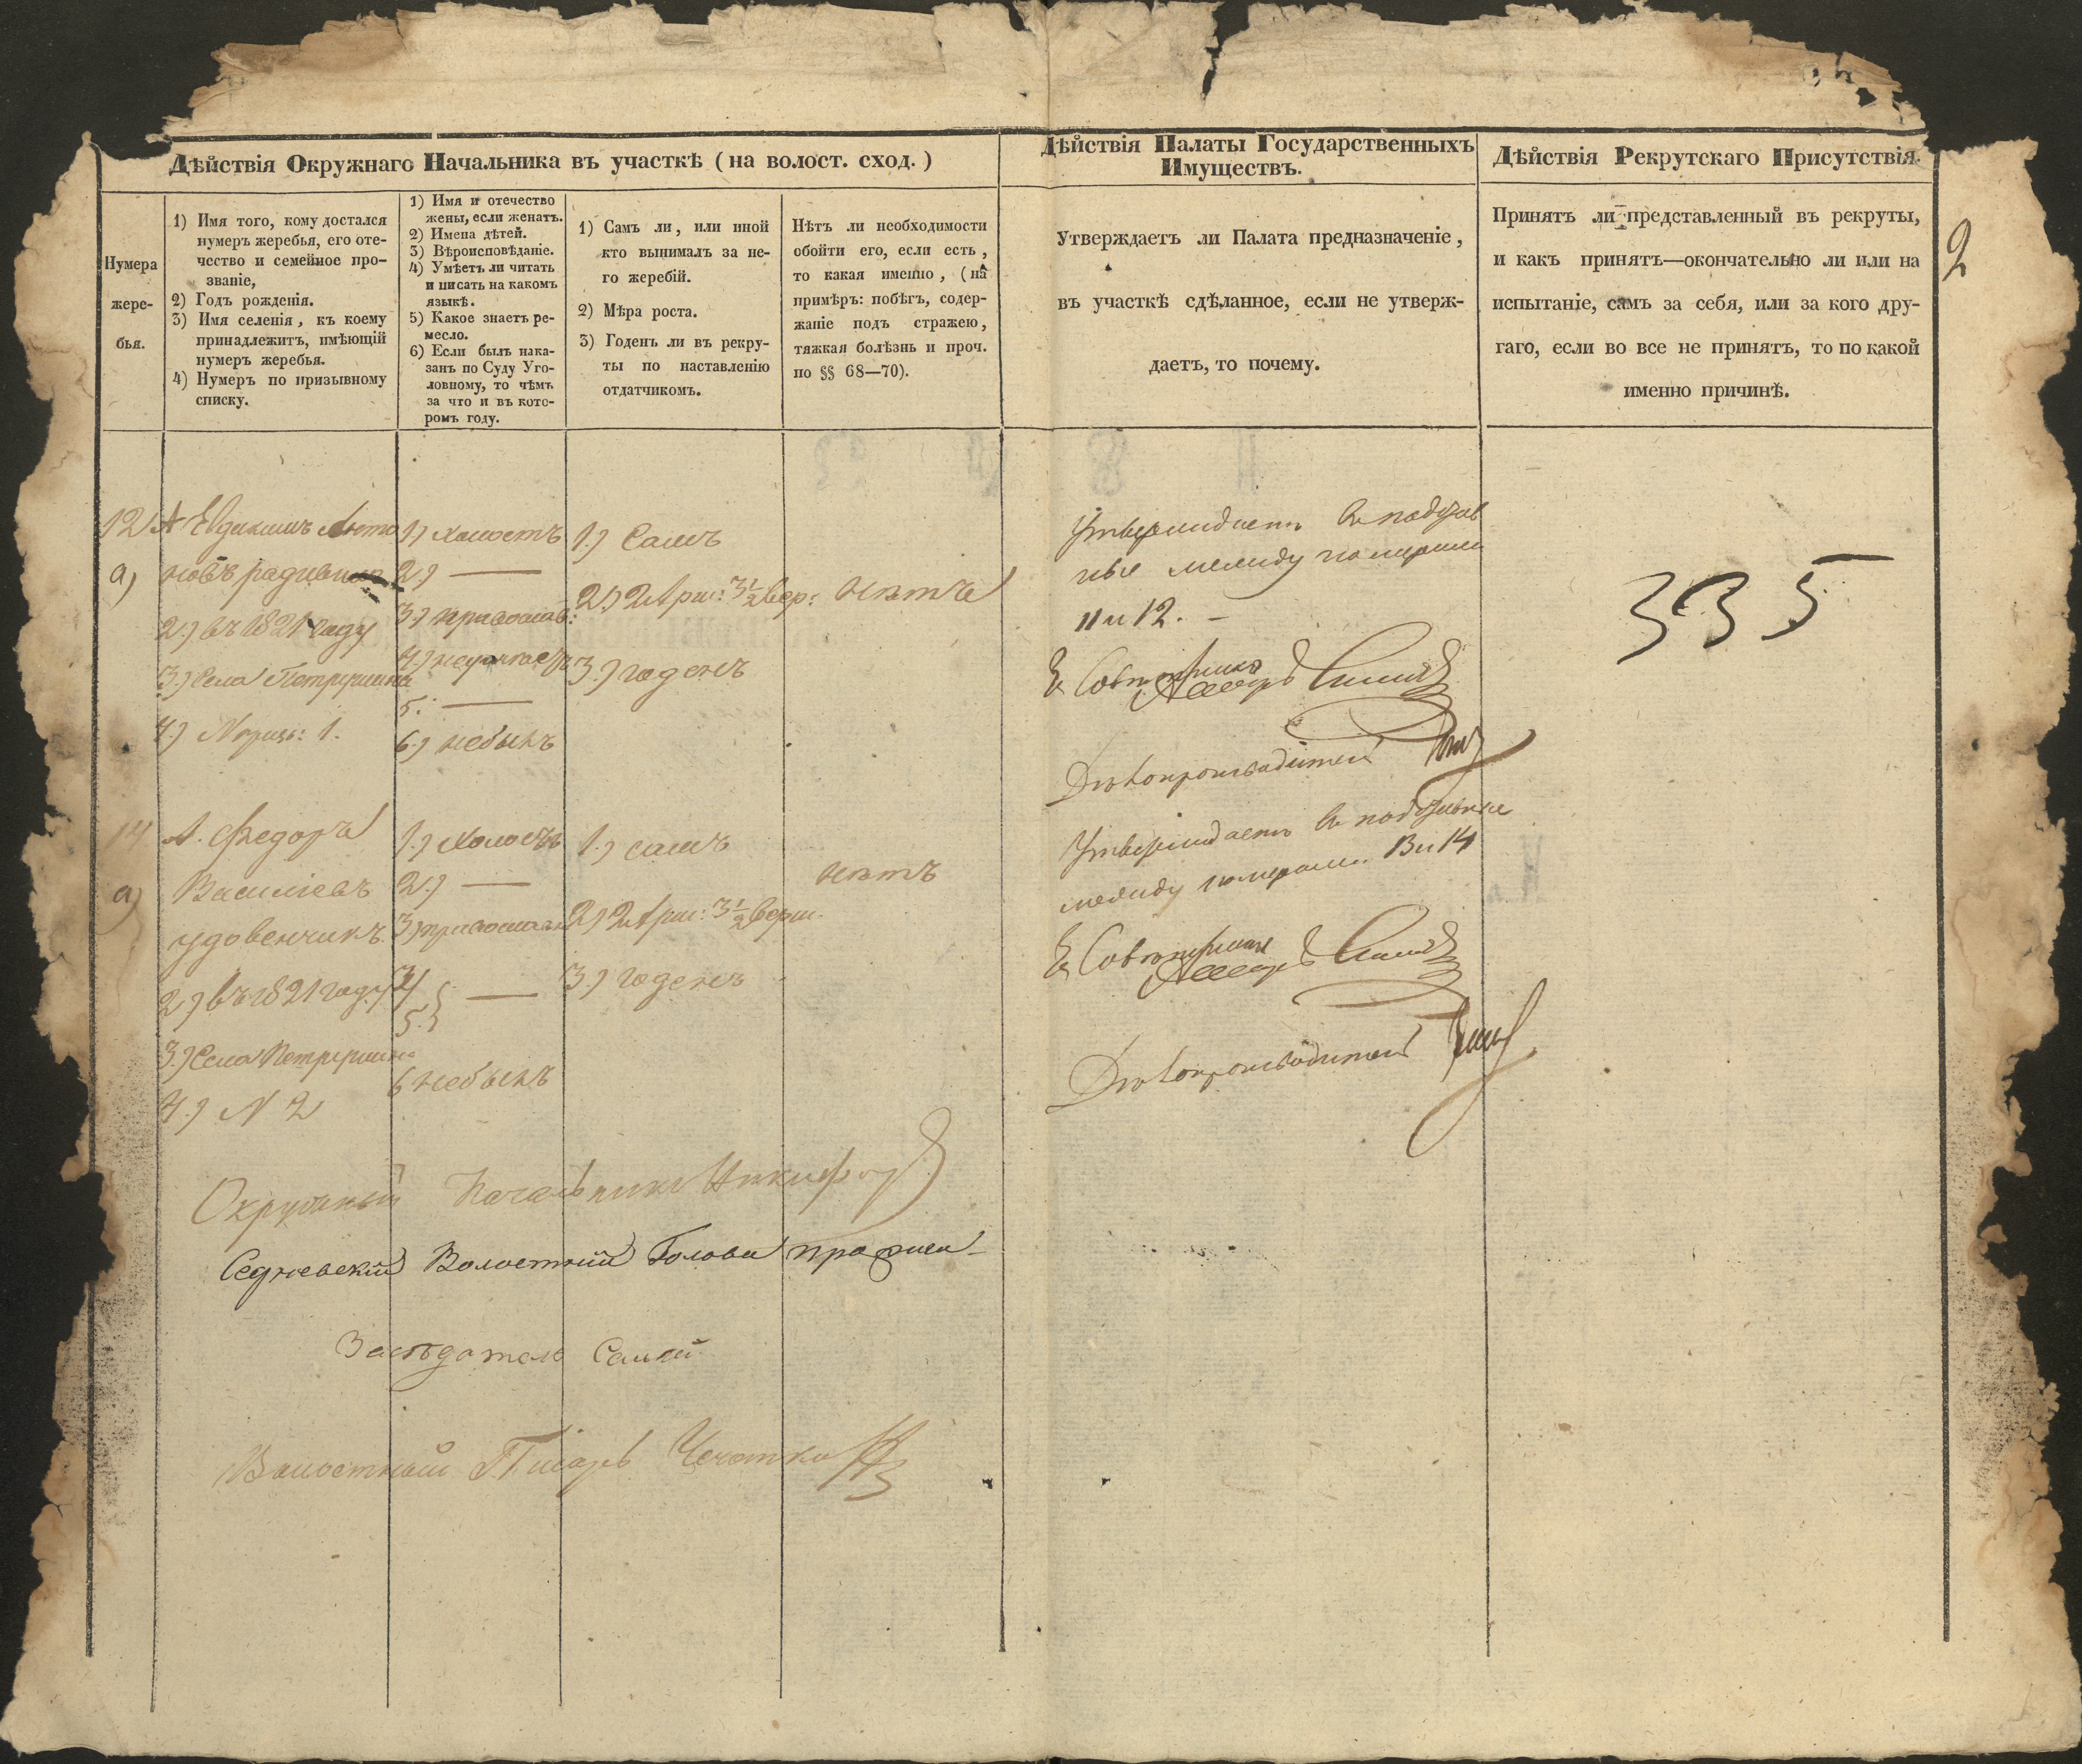 Дѣйствія Окружнаго Начальника въ участкѣ (на волост. сход.)
Дѣйствія Палаты Государственныхъ
Имуществъ.
Дѣйствія Рекрутскаго Присутствія.
2
Нумера
жере-
бья.
1) Имя того, кому достался
нумеръ жеребья, его оте-
чество и семейное про-
званіе,
2) Годъ рожденія.
3) Имя селенія, къ коему
принадлежитъ, имѣющій
нумеръ жеребья.
4) Нумеръ по призывному
списку.
1) Имя и отечество
жены, если женатъ.
2) Имена дѣтей.
3) Вѣроисповѣданіе.
4) Умѣетъ ли читать
и писать на какомъ
языкѣ.
5) Какое знаетъ ре-
месло.
6) Если былъ нака-
занъ по Суду Уго-
ловному, то чѣмъ
за что и въ кото-
ромъ году.
1) Самъ ли, или иной
кто вынималъ за не-
го жеребій.
2) Мѣра роста.
3) Годенъ ли въ рекру-
ты по наставленію
отдатчикомъ.
Нѣтъ ли необходимости
обойти его, если есть,
то какая именно, (на
примѣръ: побѣгъ, содер-
жаніе подъ стражею,
тяжкая болѣзнь и проч.
по §§ 68—70).
Утверждаетъ ли Палата предназначеніе,
въ участкѣ сдѣланное, если не утверж-
даетъ, то почему.
Принятъ ли представленный въ рекруты,
и какъ принятъ—окончательно ли или на
испытаніе, самъ за себя, или за кого дру-
гаго, если во все не принятъ, то по какой
именно причинѣ.
12
а)
Евдокимъ
2.) въ 1821 году
3.) Села Петрушина
4.) N 1.
1.) холостъ
2.) —
3.) православ:
4.)
5. —
6.) небылъ
1.) Самъ
2.) 2 Арш: 3½ вер:
3.) годенъ
нѣтъ
Утверждаетъ
между номерами
11 и 12. –
Совѣтника
Дѣлопроизводитель
335
14
а)
А. Федоръ
Василіевъ
удовенчикъ.
2.) въ 1821 году
3.) Села Петрушина
4.) N 2
1.) Холостъ
2.) —
3.) православн
4
5. } —
6 небылъ
1.) самъ
2.) 2 Арш: 3½ верш.
3.) годенъ
нѣтъ
Утверждаетъ
между номерами 13 и 14
Совѣтника
Дѣлопроизводитель
Окружный Начальникъ
Седневскій Волостный Голова
Засѣдатель
Волостный Писарь